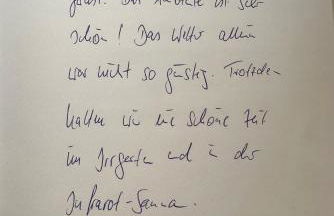 schön! Das Wetter allein
war nicht so günstig. Trotzdem
hatten wir eine schöne Zeit
im Irrgarten und in der
Infrarot-Sauna.